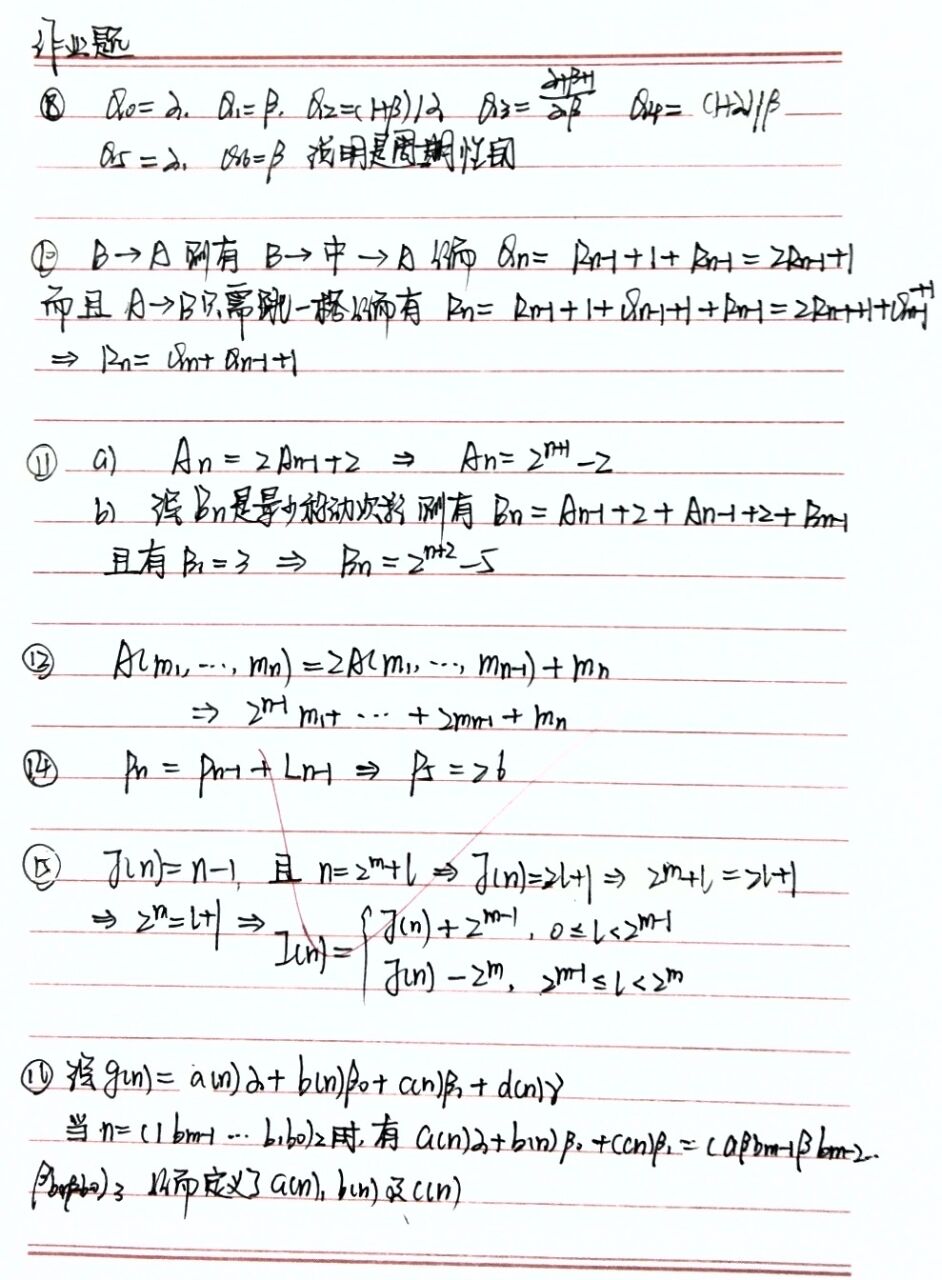 作业题
⑧ Q₀=α, Q₁=β, Q₂=(1+β)/α Q₃=(α+β+1)/αβ Q₄=(1+α)/β
Q₅=α, Q₆=β 说明是周期性的
⑩ B→A 则有 B→中→A 从而 Qn= Rn-1+1+Rn-1=2Rn-1+1
而且 A→B只需跳一格从而有 Rn= Rn-1+1+Qn-1+1+Rn-1=2Rn-1+1+Qn-1+1
⇒ Rn= Qn+Qn-1+1
⑪ a) An=2An-1+2 ⇒ An=2ⁿ⁺¹-2
b) 设Bn是最少移动次数 则有 Bn=An-1+2+An-1+2+Bn-1
且有 B₁=3 ⇒ Bn=2ⁿ⁺²-5
⑫ A(m₁,…,mn)=2A(m₁,…,mn-1)+mn
⇒ 2ⁿ⁻¹m₁+…+2mn-1+mn
⑭ Pn=Pn-1+Ln-1 ⇒ P₅=26
⑮ J(n)=n-1, 且 n=2ᵐ+l ⇒ J(n)=2l+1 ⇒ 2ᵐ+l=2l+1
⇒ 2ᵐ=l+1 ⇒ I(n)={ J(n)+2ᵐ⁻¹, 0≤l<2ᵐ⁻¹
J(n)-2ᵐ, 2ᵐ⁻¹≤l<2ᵐ
⑯ 设g(n)=a(n)α+b(n)β₀+c(n)β₁+d(n)γ
当n=(1bm-1…b₁b₀)₂时, 有 a(n)α+b(n)β₀+c(n)β₁=(αβbm-1βbm-2…
βb₁βb₀)₃ 从而定义了a(n), b(n)及c(n)